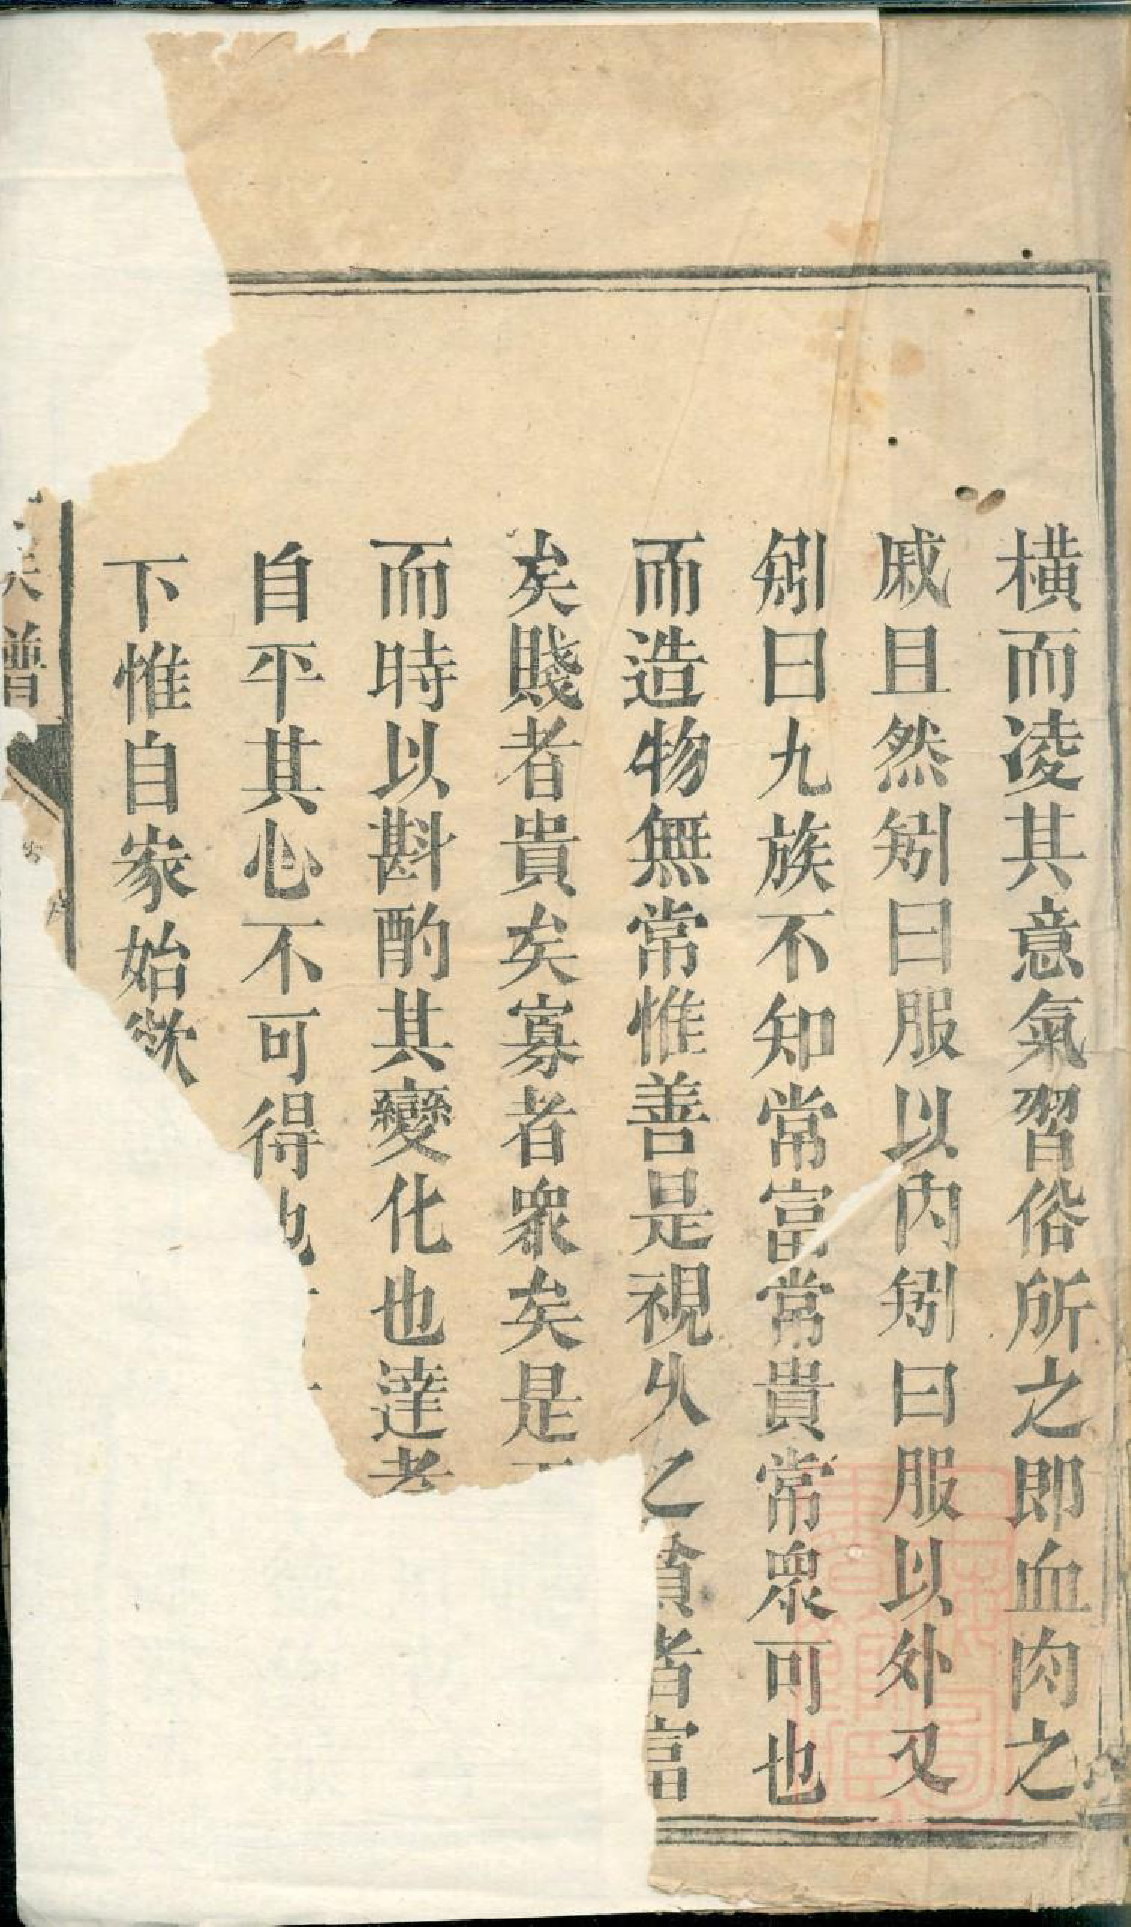 橫而凌其意氣習俗所之即血肉之
戚且然矧曰服以內矧曰服以外又
矧曰九族不知常富常貴常衆可也
而造物無常惟善是視乆之貧者富
矣賤者貴矣寡者衆矣是
而時以斟酌其變化也達者
自平其心不可得也
下惟自家始欲
族譜